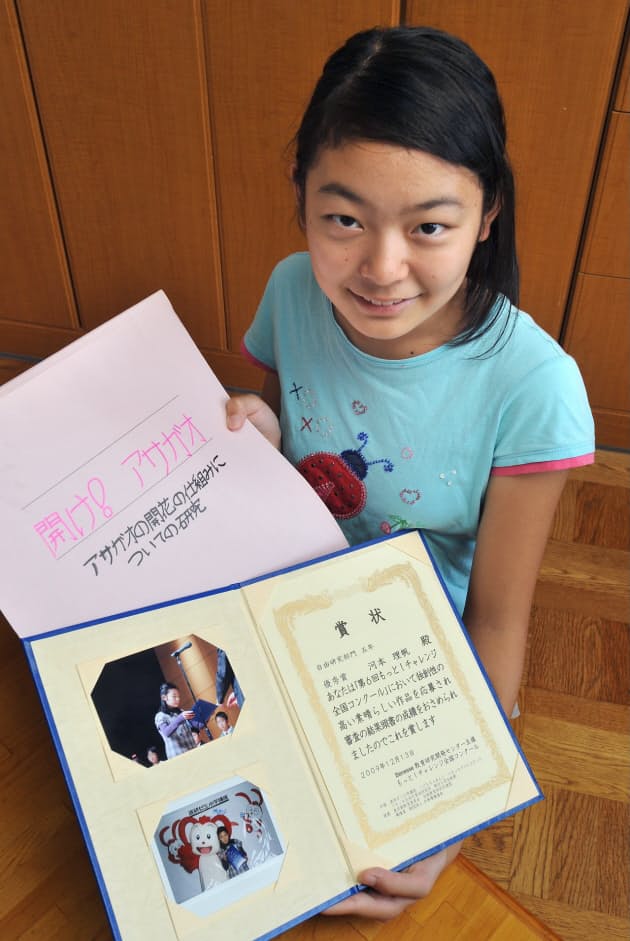 開け! アサガオ
アサガオの開花の仕組みに
ついての研究
賞状
自由研究部門 五年
優秀賞 河本 理帆 殿
あなたは「第6回もっと!チャレンジ
全国コンクール」において独創性の
高い素晴らしい作品を応募され
審査の結果頭書の成績をおさめられ
ましたのでこれを賞します
2009年12月13日
Benesse 教育研究開発センター主催
もっと!チャレンジ全国コンクール